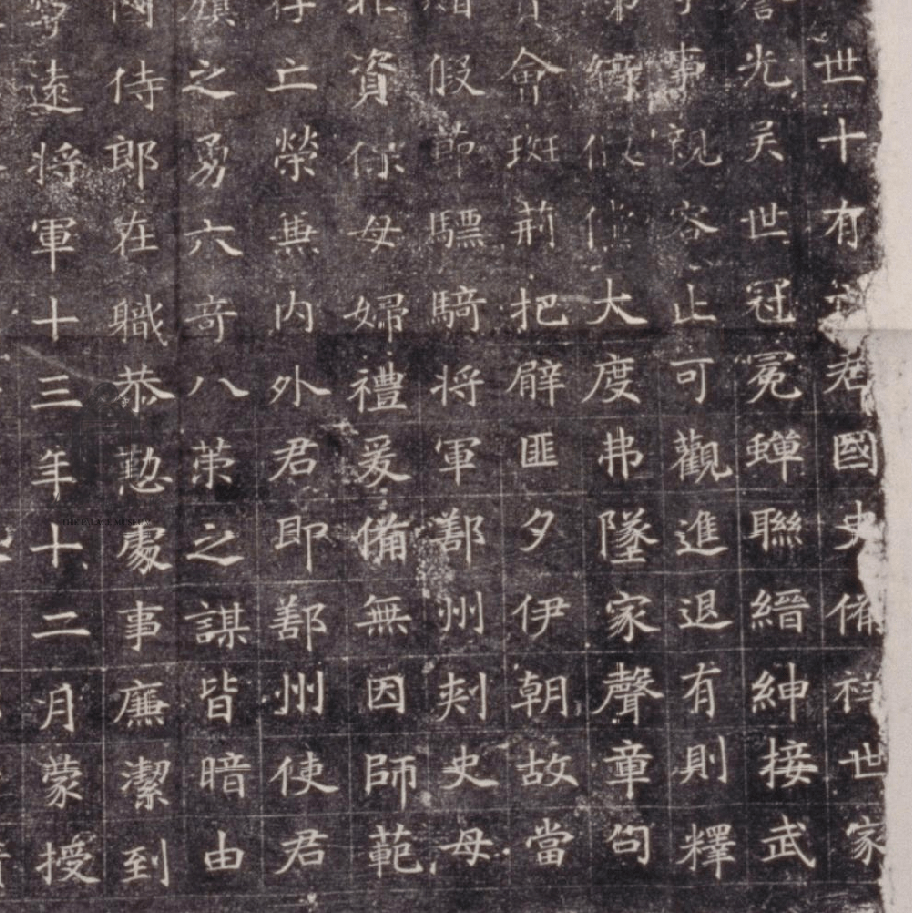 世十有國史備祥世家
光吴世冠冕蟬聯縉紳接武
事親容止可觀進退有則釋
大度弗墜家聲章句
會班荊把臂匪夕伊朝故當
假節驃騎将軍鄯州刾史母
資保母婦禮爰備無因師範
存亡榮無内外君即鄯州使君
之勇六竒八策之謀皆暗由
國侍郎在職恭懃處事廉潔到
遠将軍十三年十二月蒙授